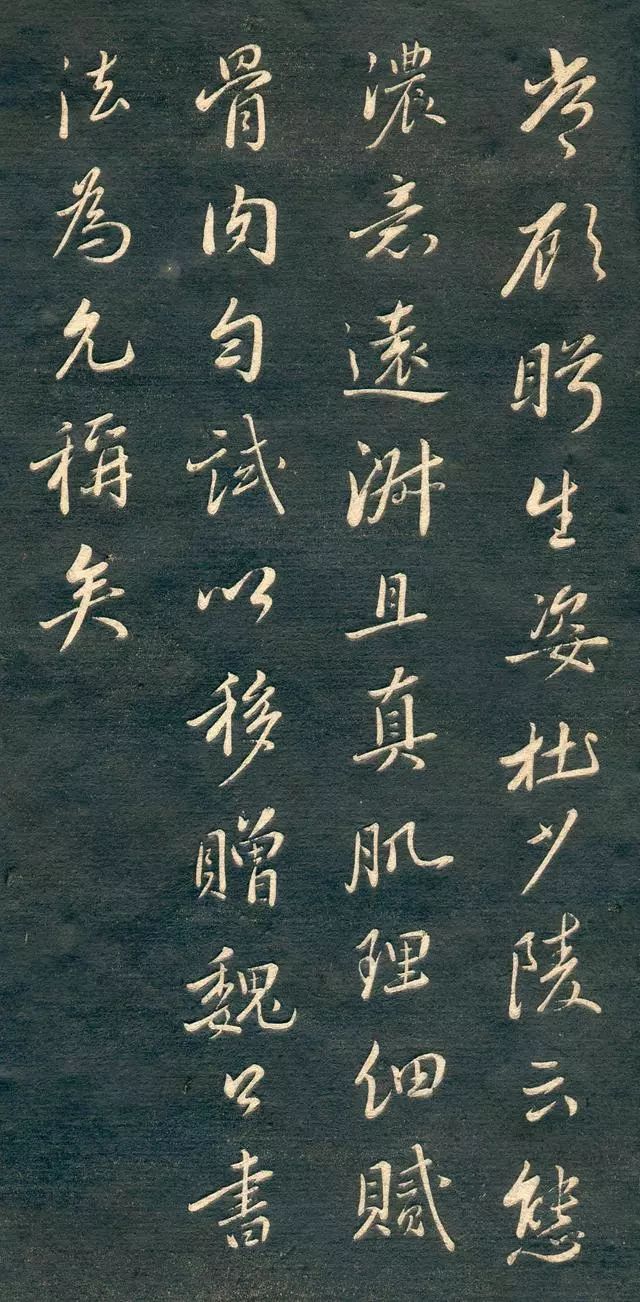 常顧眄生姿杜少陵云態
濃意遠淑且真肌理細膩
骨肉勻試以移贈魏公書
法為允稱矣